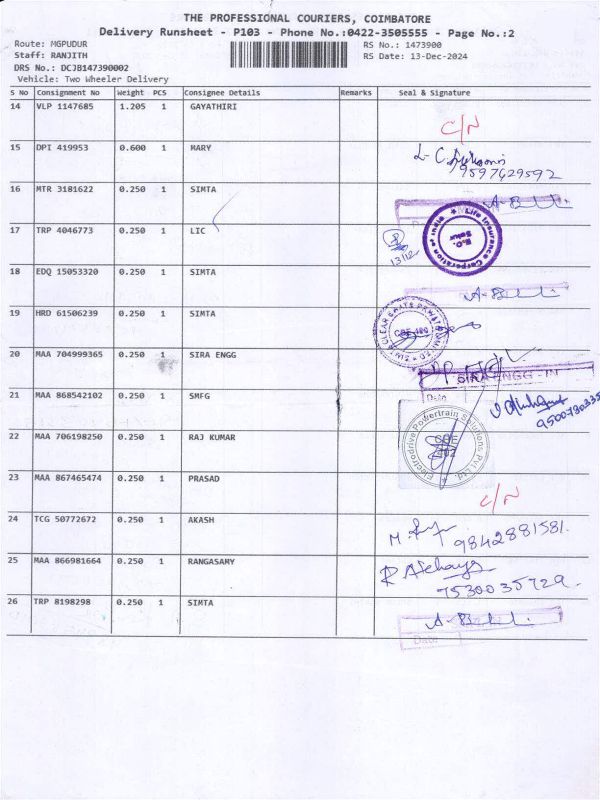 THE PROFESSIONAL COURIERS, COIMBATORE
Delivery Runsheet - P103 - Phone No.:0422-3505555 - Page No.:2
Route: MGPUDUR RS No.: 1473900
Staff: RANJITH RS Date: 13-Dec-2024
DRS No.: DCJB147390002
Vehicle: Two Wheeler Delivery
S No Consignment No Weight PCS Consignee Details Remarks Seal & Signature
14 VLP 1147685 1.205 1 GAYATHIRI
C/N
15 DPI 419953 0.600 1 MARY
9597629592
16 MTR 3181622 0.250 1 SIMTA
17 TRP 4046773 0.250 1 LIC
Life Insurance Corporation of India
13/12
18 EDQ 15053320 0.250 1 SIMTA
19 HRD 61506239 0.250 1 SIMTA
20 MAA 704999365 0.250 1 SIRA ENGG
SIRA ENGG - IN
21 MAA 868542102 0.250 1 SMFG
Date
22 MAA 706198250 0.250 1 RAJ KUMAR
Electrodrive Powertrain Solutions Pvt. Ltd.
CBE
402
23 MAA 867465474 0.250 1 PRASAD
C/N
24 TCG 50772672 0.250 1 AKASH
9842881581.
25 MAA 866981664 0.250 1 RANGASAMY
7530035729.
26 TRP 8198298 0.250 1 SIMTA
Date